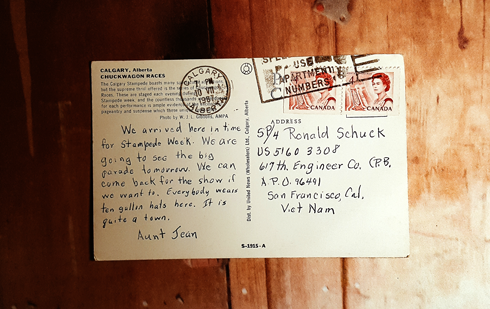 CALGARY, Alberta
CHUCKWAGON RACES
The Calgary Stampede boasts many
but the supreme thrill offered is the series of
Races. These are staged each evening
Stampede week, and the countless thousands
for each performance is ample evidence
pageantry and suspense which these
Photo by W. J. L. Gibbons, AMPA
We arrived here in time
for Stampede Week. We are
going to see the big
parade tomorrow. We can
come back for the show if
we want to. Everybody wears
ten gallon hats here. It is
quite a town.
Aunt Jean
CALGARY
PM
10 VII
ALBERTA
Dist. by United News (Wholesalers) Ltd., Calgary, Alberta
S-1915-A
USE
APARTMENT
NUMBERS
CANADA
CANADA
ADDRESS
SP/4 Ronald Schuck
US 5160 3308
617th. Engineer Co. (P.B.
A.P.O. 96491
San Francisco, Cal.
Viet Nam